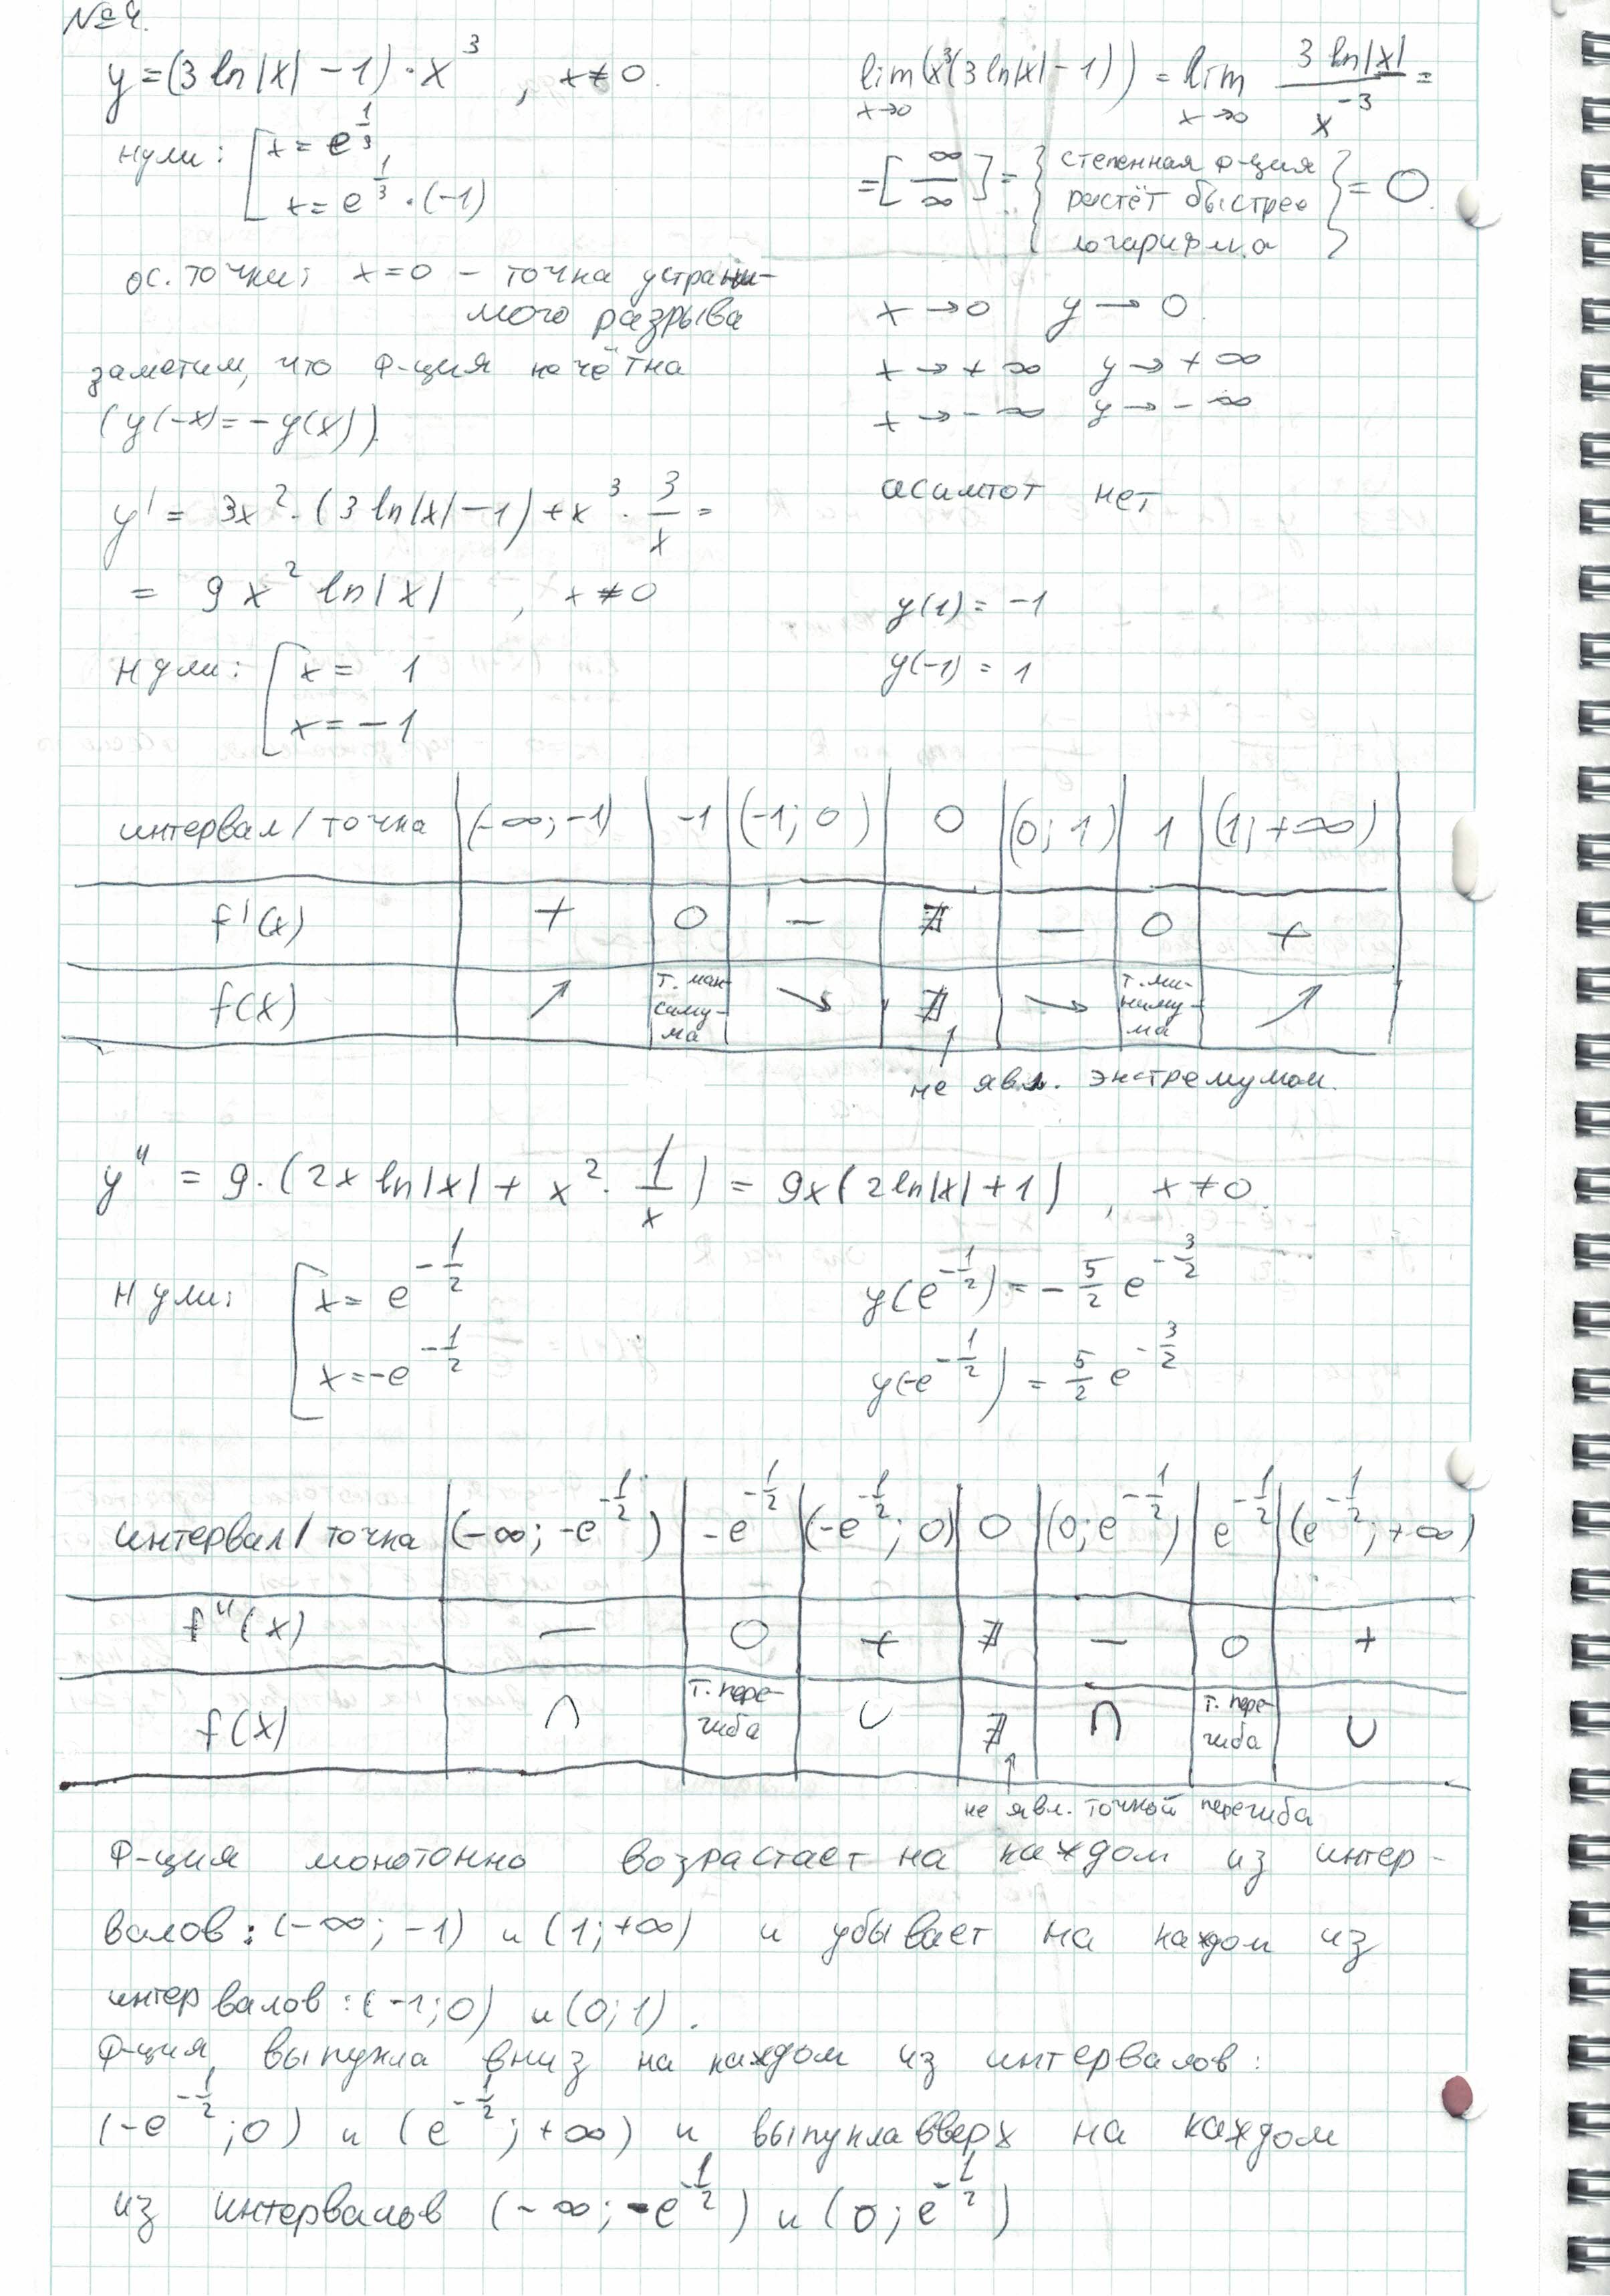 №4.
y = (3 ln|x| − 1) · x³ , x ≠ 0.
нули: [ x = e^{1/3}
x = e^{1/3} · (−1)
ос. точки: x = 0 – точка устрани-
мого разрыва
заметим, что ф-ция нечётна
(y(−x) = −y(x)).
lim_{x→0} (x³(3 ln|x| − 1)) = lim_{x→0} 3 ln|x| / x^{−3} =
= [∞/∞] = { степенная ф-ция
растёт быстрее
логарифма } = 0.
x → 0 y → 0.
x → +∞ y → +∞
x → −∞ y → −∞
y' = 3x² · (3 ln|x| − 1) + x³ · 3/x =
= 9x² ln|x| , x ≠ 0
асимтот нет
нули: [ x = 1
x = −1
y(1) = −1
y(−1) = 1
интервал/точка | (−∞; −1) | −1 | (−1; 0) | 0 | (0; 1) | 1 | (1; +∞)
f'(x) | + | 0 | − | ∄ | − | 0 | +
f(x) | ↗ | т. максимума | ↘ | ∄ | ↘ | т. минимума | ↗
не явл. экстремумом.
y'' = 9 · (2x ln|x| + x² · 1/x) = 9x(2 ln|x| + 1) , x ≠ 0.
Нули: [ x = e^{−1/2}
x = −e^{−1/2}
y(e^{−1/2}) = −5/2 e^{−3/2}
y(−e^{−1/2}) = 5/2 e^{−3/2}
интервал/точка | (−∞; −e^{−1/2}) | −e^{−1/2} | (−e^{−1/2}; 0) | 0 | (0; e^{−1/2}) | e^{−1/2} | (e^{−1/2}; +∞)
f''(x) | − | 0 | + | ∄ | − | 0 | +
f(x) | ∩ | т. перегиба | ∪ | ∄ | ∩ | т. перегиба | ∪
не явл. точкой перегиба
Ф-ция монотонно возрастает на каждом из интер-
валов: (−∞; −1) и (1; +∞) и убывает на каждом из
интервалов: (−1; 0) и (0; 1).
Ф-ция выпукла вниз на каждом из интервалов:
(−e^{−1/2}; 0) и (e^{−1/2}; +∞) и выпукла вверх на каждом
из интервалов (−∞; −e^{−1/2}) и (0; e^{−1/2})